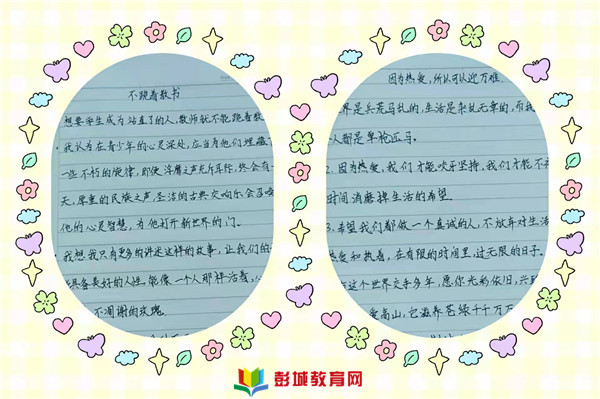 不跪着教书
想要学生成为站直了的人,教师就不能跪着教
我认为在青少年的心灵深处,应当为他们埋藏
一些不朽的旋律,即使浮靡之声充斥耳际,终会有一
天,厚重的民族之声,圣洁的古典交响乐会召唤
他的心灵智慧,为他打开新世界的门。
我想我只有更多的讲述这样的故事,让我们的
具备美好的人性,能像一个人那样活着,
不凋谢的玫瑰
因为热爱,所以可以迎万难
界是兵荒马乱的,生活是杂乱无章的,而我
人都是单枪匹马。
2.因为热爱,我们才能咬牙坚持,我们才能不
时间消磨掉生活的希望。
3.希望我们都做一个真诚的人,不放弃对生活
热爱和执着,在有限的时间里,过无限的日子。
在这个世界交手多年,愿你光彩依旧,兴
爱高山,它滋养茫绿千千万万
彭城教育网